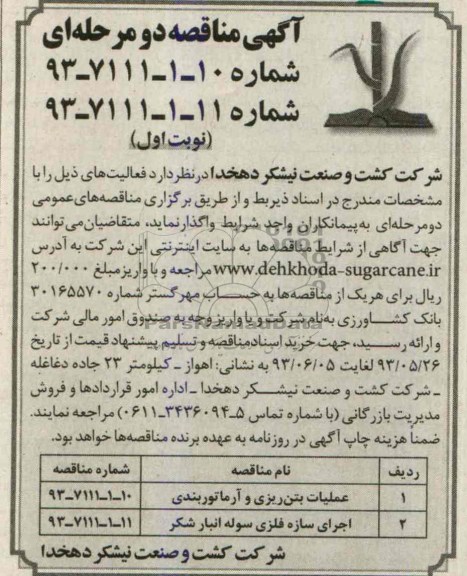 آگهی مناقصه دو مرحله‌ای
شماره ۱۰-۱-۷۱۱۱-۹۳
شماره ۱۱-۱-۷۱۱۱-۹۳
(نوبت اول)
شرکت کشت و صنعت نیشکر دهخدا در نظر دارد فعالیت‌های ذیل را با
مشخصات مندرج در اسناد ذیربط و از طریق برگزاری مناقصه‌های عمومی
دو مرحله‌ای به پیمانکاران واجد شرایط واگذار نماید، متقاضیان می‌توانند
جهت آگاهی از شرایط مناقصه‌ها به سایت اینترنتی این شرکت به آدرس
www.dehkhoda-sugarcane.ir مراجعه و با واریز مبلغ ۲۰۰/۰۰۰
ریال برای هریک از مناقصه‌ها به حساب مهر گستر شماره ۳۰۱۶۵۵۷۰
بانک کشاورزی به‌نام شرکت و یا واریز وجه به صندوق امور مالی شرکت
و ارائه رسید، جهت خرید اسناد مناقصه و تسلیم پیشنهاد قیمت از تاریخ
۹۳/۰۵/۲۶ لغایت ۹۳/۰۶/۰۵ به نشانی: اهواز ـ کیلومتر ۲۳ جاده دغاغله
ـ شرکت کشت و صنعت نیشکر دهخدا ـ اداره امور قراردادها و فروش
مدیریت بازرگانی (با شماره تماس ۵-۳۴۳۶۰۹۴-۰۶۱۱) مراجعه نمایند.
ضمنا هزینه چاپ آگهی در روزنامه به عهده برنده مناقصه‌ها خواهد بود.
ردیف نام مناقصه شماره مناقصه
۱ عملیات بتن‌ریزی و آرماتوربندی ۱۰-۱-۷۱۱۱-۹۳
۲ اجرای سازه فلزی سوله انبار شکر ۱۱-۱-۷۱۱۱-۹۳
شرکت کشت و صنعت نیشکر دهخدا